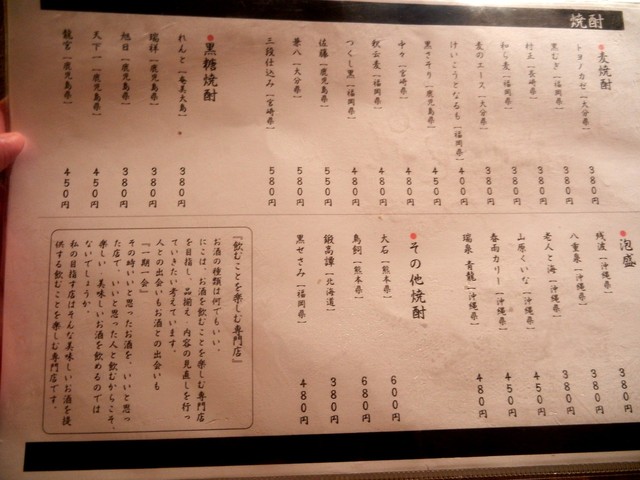 焼酎
麦焼酎
トヨノカゼ [大分県] 380円
黒むぎ [福岡県] 380円
村正 [長崎県] 380円
和ら麦 [福岡県] 380円
麦のエース [大分県] 380円
けいこうとなるも [福岡県] 400円
黒さそり [鹿児島県] 450円
中々 [宮崎県] 480円
[福岡県] 480円
つくし黒 [福岡県] 480円
佐藤 [鹿児島県] 550円
兼八 [大分県] 580円
三段仕込み [宮崎県] 580円
黒糖焼酎
れんと [奄美大島] 380円
瑞祥 [鹿児島県] 380円
旭日 [鹿児島県] 380円
天下一 [鹿児島県] 450円
龍宮 [鹿児島県] 450円
泡盛
残波 [沖縄県] 380円
八重泉 [沖縄県] 380円
老人と海 [沖縄県] 380円
山原くいな [沖縄県] 450円
春雨カリー [沖縄県] 450円
瑞泉 青龍 [沖縄県] 480円
その他焼酎
大石 [熊本県] 600円
鳥飼 [熊本県] 680円
鍛高譚 [北海道] 380円
黒ぜさみ [福岡県] 480円
『飲むことを楽しむ専門店』
お酒の種類は何でもいい。
にこは、お酒を飲むことを楽しむ専門店
を目指し、品揃え、内容の見直しを行っ
ていきたい考えています。
人との出会いもお酒との出会いも
『一期一会』
その時いいと思ったお酒を、いいと思っ
た店で、いいと思った人と飲むからこそ、
楽しい、美味しいお酒を飲めるのでは
ないでしょうか。
私の目指す店はそんな美味しいお酒を提
供する飲むことを楽しむ専門店です。